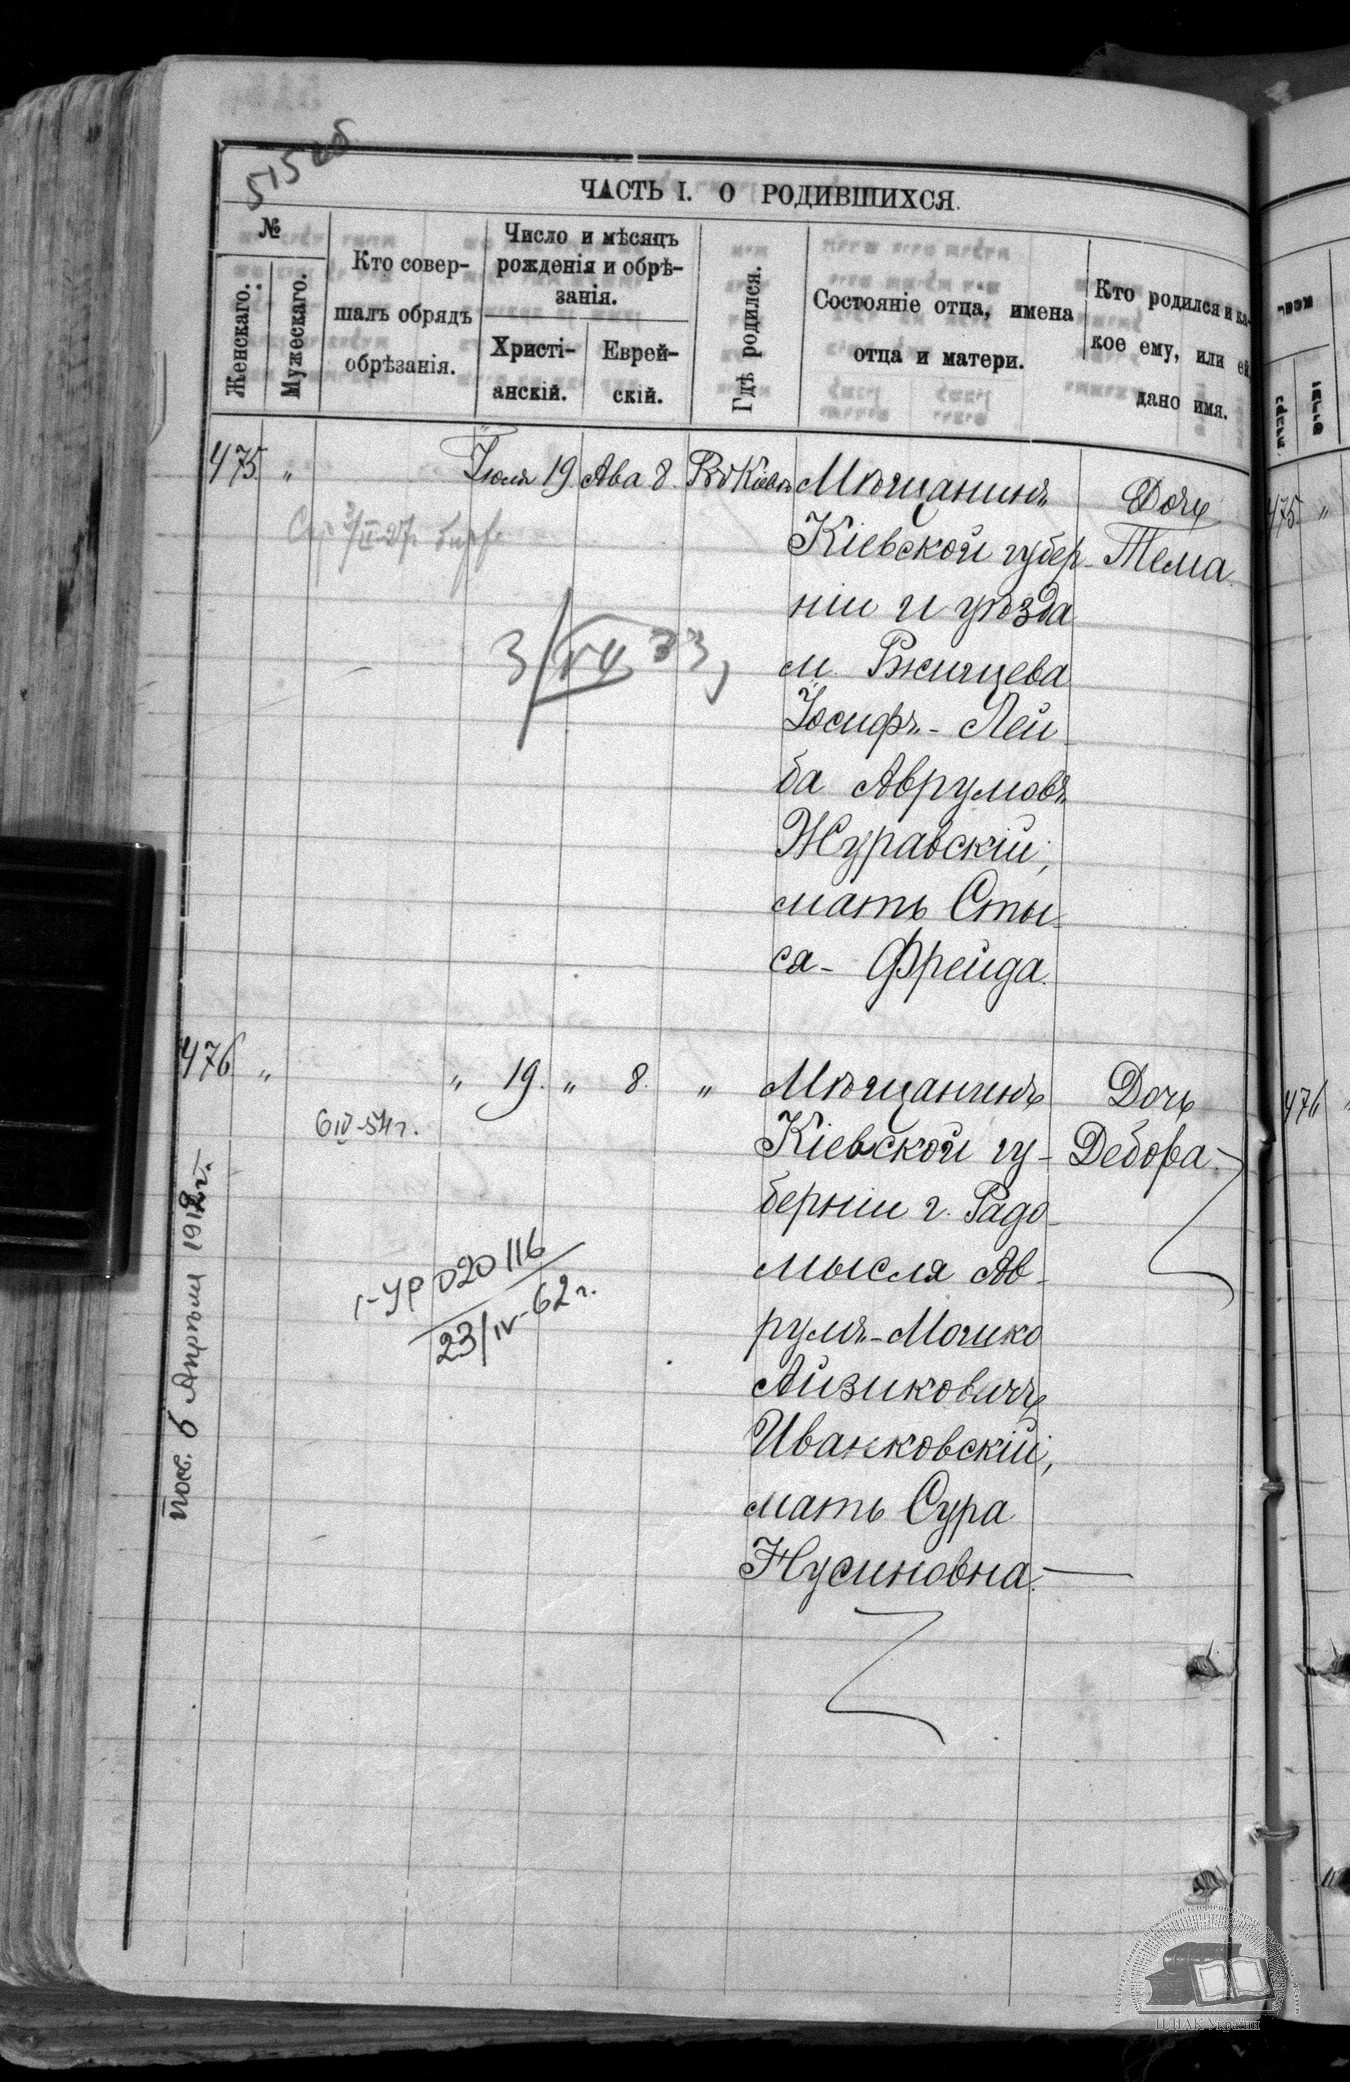 515 об
ЧАСТЬ I. О РОДИВШИХСЯ.
№
Женскаго.
Мужескаго.
Кто совер-
шалъ обрядъ
обрѣзанія.
Число и мѣсяцъ
рожденія и обрѣ-
занія.
Христі-
анскій.
Еврей-
скій.
Гдѣ родился.
Состояніе отца, имена
отца и матери.
Кто родился и ка-
кое ему, или ей
дано имя.
475 „ Іюля 19 Ава 8. Въ Кіевѣ Мѣщанинъ Дочь
Кіевской губер- Тема.
ніи и уѣзда
м. Ржищева
Іосифъ-Лей-
ба Аврумовъ
Журавскій;
мать Сты-
ся-Фрейда.
3/VII 33,
476 „ „ 19. „ 8. „ Мѣщанинъ Дочь
Кіевской гу- Дебора.
берніи г. Радо-
мысля Ав-
румъ-Мошко
Айзиковичъ
Иванковскій;
мать Сура
Нусиновна.
6 IV-54 г.
I-УР 020116
23/IV-62 г.
6 Апрѣля 1912 г.
475 „
476
ЦДІАК України